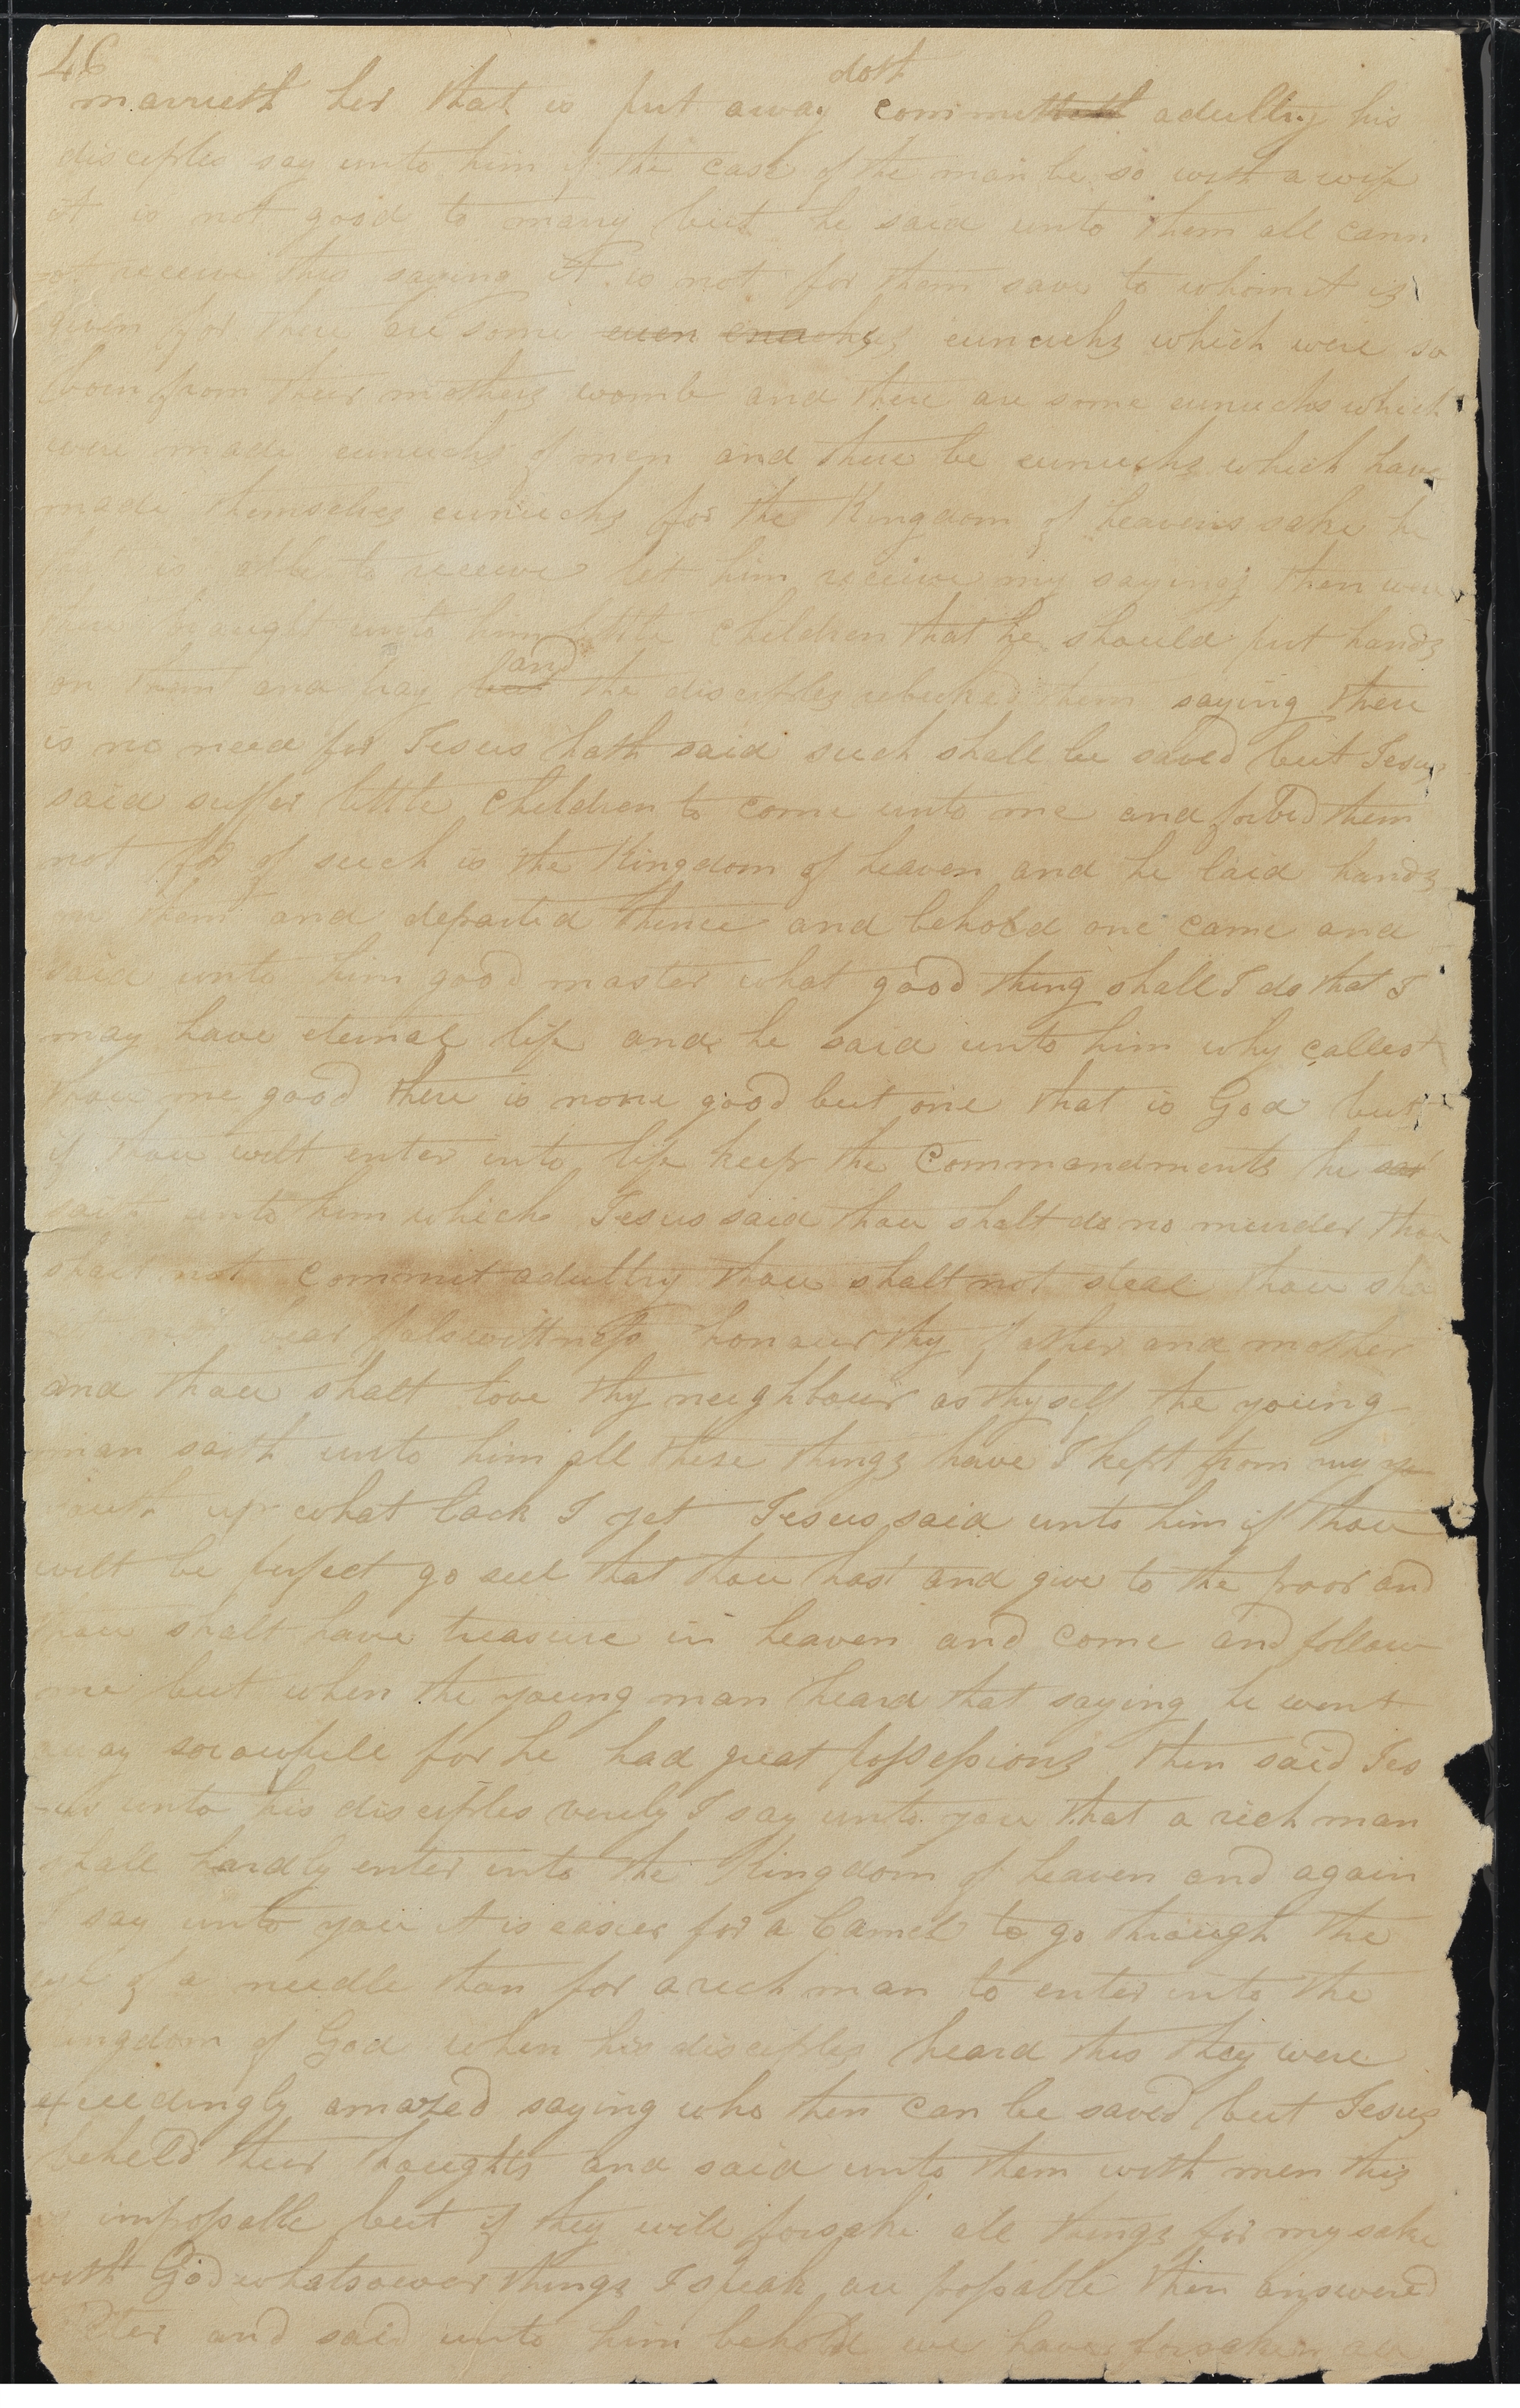 46
dost
marrieth her that is put away committeth adultry his
disciples say unto him if the case of the man be so with a wife
it is not good to marry but he said unto them all cann
-ot receive this saving it is not for them save to whom it is
given for there are some even enuchs eunuchs which were so
born from their mothers womb and there are some eunuchs which
were made eunuchs of men and there be eunuchs which have
made themselves eunuchs for the Kingdom of heavens sake he
that is able to receive let him receive my sayings then were
there brought unto him little children that he should put hands
and
on them and pray but the disciples rebuked them saying there
is no need for Jesus hath said such shall be saved but Jesus
said suffer little children to come unto me and forbid them
not for of such is the Kingdom of heaven and he laid hands
on them and departed thence and behold one came and
said unto him good master what good thing shall I do that I
may have eternal life and he said unto him why callest
thou me good there is none good but one that is God but
if thou wilt enter into life keep the commandments he sai
saith unto him which Jesus said thou shalt do no murder thou
shalt not commit adultry thou shalt not steal thou sha
not bear falswittness honour thy father and mother
and thou shalt love thy neighbour as thyself the young
man saith unto him all these things have I kept from my yo
youth up what lack I yet Jesus said unto him if thou
wilt be perfect go sell that thou hast and give to the poor and
thou shalt have treasure in heaven and come and follow
me but when the young man heard that saying he went
away sorowfull for he had great possessions then said Jes
-us unto his disciples verily I say unto you that a rich man
shall hardly enter into the Kingdom of heaven and again
I say unto you it is easier for a Camel to go through the
eye of a needle than for a rich man to enter into the
kingdom of God when his disciples heard this they were
exceedingly amazed saying who then can be saved but Jesus
beheld their thoughts and said unto them with men this
is impossable but if they will forsake all things for my sake
with God whatsoever things I speak are possable then answered
Peter and said unto him behold we have forsaken all